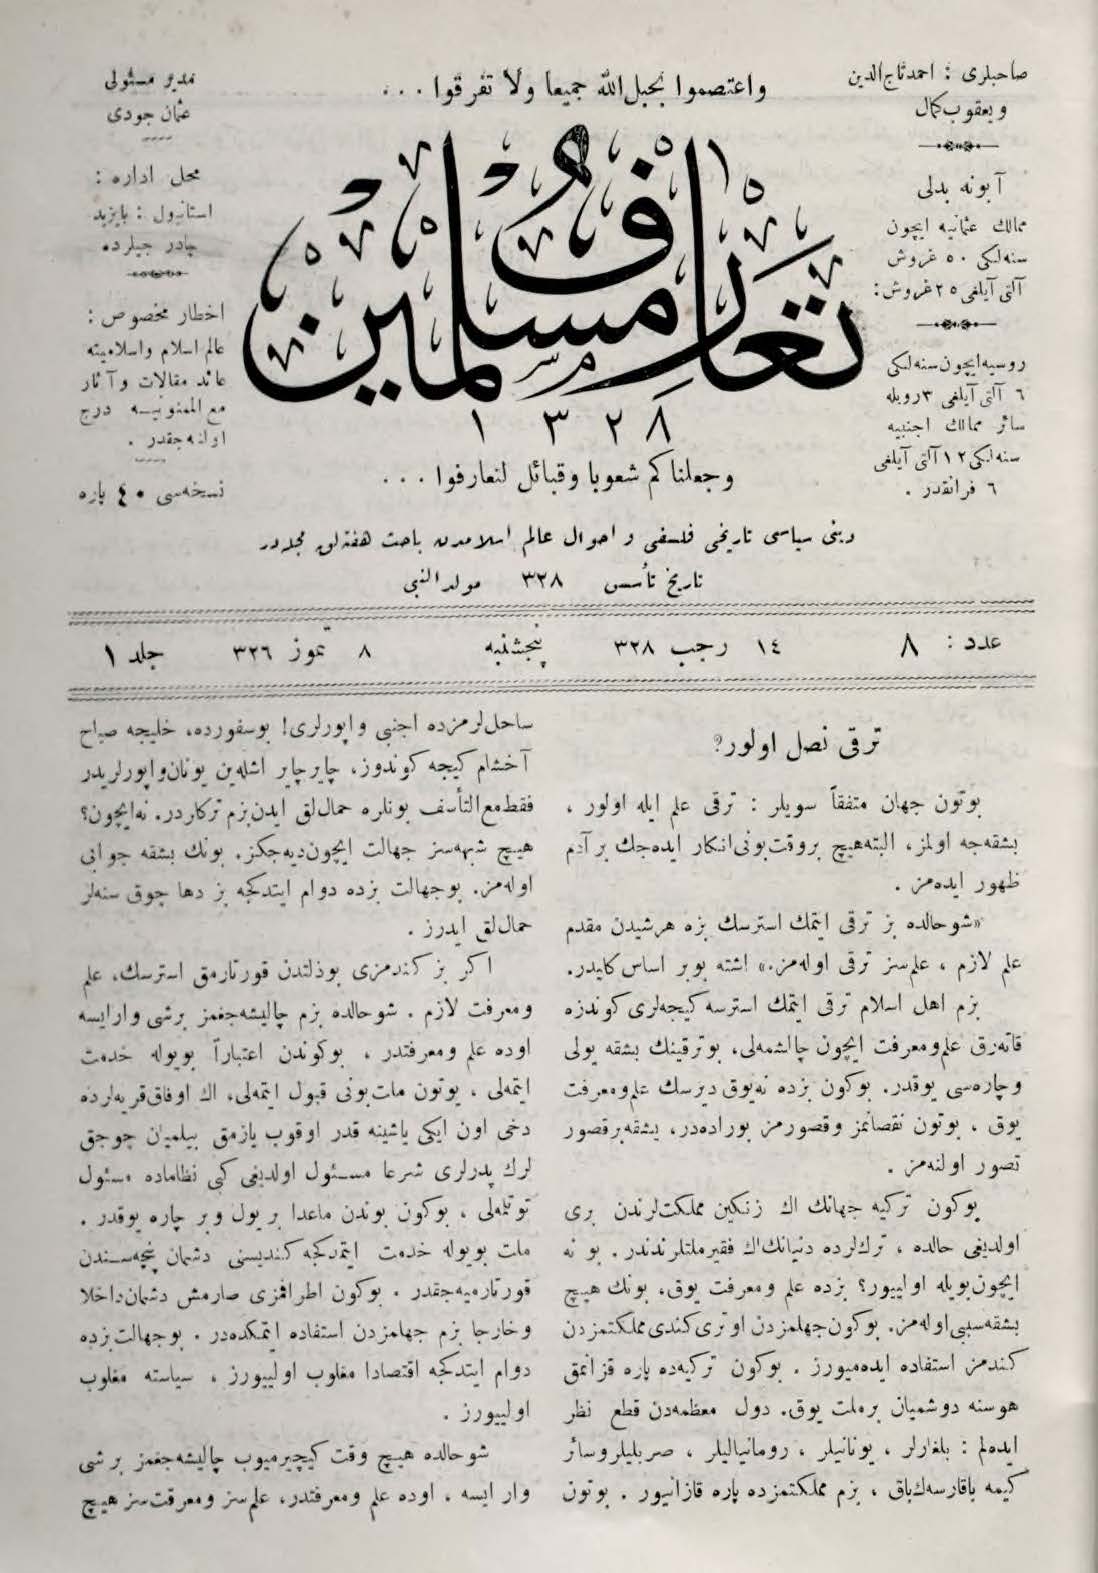 صاحبلری : احمد تاج‌الدین
و یعقوب كمال
آبونه بدلی
ممالك عثمانیه ایچون
سنه‌لكی ٥٠ غروش
آلتی آیلغی ٢٥ غروش :
روسیه ایچون سنه‌لكی
٦ آلتی آیلغی ٣ روبله
سائر ممالك اجنبیه
سنه‌لكی ١٢ آلتی آیلغی
٦ فرانقدر .
واعتصموا بحبل‌الله جمیعا ولا تفرقوا . . .
تعارف مسلمین
١٣٢٨
وجعلناكم شعوبا وقبائل لتعارفوا . . .
مدیر مسئولی
عثمان جودی
محل اداره :
استانبول : بایزید
چادرجیلرده
اخطار مخصوص :
عالم اسلام واسلامیته
عائد مقالات وآثار
مع‌الممنونیـه درج
اولنه‌جقدر .
نسخه‌سی ٤٠ پاره
دینی سیاسی تاریخی فلسفی و احوال عالم اسلامدن باحث هفته‌لق مجله‌در
تاریخ تأسس ٣٢٨ مولد النبی
عدد : ٨ ١٤ رجب ٣٢٨ پنجشنبه ٨ تموز ٣٢٦ جلد ١
ترقی نصل اولور؟
بوتون جهان متفقاً سویلر : ترقی علم ایله اولور ،
بشقه‌جه اولمز، البته‌هیچ بروقت‌بونی‌انكار ایده‌جك بر آدم
ظهور ایده‌مز .
«شوحالده بز ترقی ایتمك استرسك بزه هرشیدن مقدم
علم لازم ، علم‌سز ترقی اوله‌مز.» اشته بوبر اساس‌كلیدر.
بزم اهل اسلام ترقی ایتمك استرسه كیجه‌لری كوندزه
قاته‌رق علم‌ومعرفت ایچون چالشمه‌لی، بوترقینك بشقه یولی
وچاره‌سی یوقدر. بوكون بزده نه‌یوق دیرسك علم‌ومعرفت
یوق ، بوتون نقصانمز وقصورمز بوراده‌در، بشقه‌برقصور
تصور اولنه‌مز .
بوكون تركیه جهانك اك زنكین مملكت‌لرندن بری
اولدیغی حالده ، ترك‌لرده دنیانك‌اك فقیرملتلرندندر. بو نه
ایچون‌بویله اولییور؟ بزده علم ومعرفت یوق، بونك هیچ
بشقه‌سببی‌اوله‌مز. بوكون‌جهلمزدن اوتری‌كندی‌مملكتمزدن
كندمز استفاده ایده‌میورز . بوكون تركیه‌ده پاره قزانمق
هوسنه دوشمیان برملت یوق. دول معظمه‌دن قطع نظر
ایده‌لم : بلغارلر ، یونانیلر ، رومانیالیلر ، صربلیلروسائر
كیمه باقارسه‌ك‌باق ، بزم مملكتمزده پاره قازانیور . بوتون
ساحل‌لرمزده اجنبی واپورلری! بوسفورده، خلیجه صباح
آخشام كیجه كوندوز، چایرچایر اشله‌ین یونان‌واپورلریدر
فقط‌مع‌التأسف بونلره حمال‌لق ایدن‌بزم تركلردر. نه‌ایچون؟
هیچ شبهه‌سز جهالت ایچون‌دیه‌جكز. بونك بشقه جوابی
اوله‌مز. بوجهالت بزده دوام ایتدكجه بز دها چوق سنه‌لر
حمال‌لق ایدرز .
اكر بز كندمزی بوذلتدن قورتارمق استرسك، علم
ومعرفت لازم . شوحالده بزم چالیشه‌جغمز برشی وارایسه
اوده علم ومعرفتدر ، بوكوندن اعتباراً بویوله خدمت
ایتمه‌لی ، بوتون ملت‌بونی قبول ایتمه‌لی، اك اوفاق‌قریه‌لرده
دخی اون ایكی یاشینه قدر اوقوب یازمق بیلمیان چوجق
لرك پدرلری شرعا مسـئول اولدیغی كبی نظاماده مسئول
توتلمه‌لی ، بوكون بوندن ماعدا بر یول و بر چاره یوقدر .
ملت بویوله خدمت ایتمدكجه كندیسنی دشمان پنچه‌سـندن
قورتارمیه‌جقدر . بوكون اطرافمزی صارمش دشمان‌داخلا
وخارجا بزم جهلمزدن استفاده ایتمكده‌در . بوجهالت‌بزده
دوام ایتدكجه اقتصادا مغلوب اولییورز ، سیاسته مغلوب
اولییورز .
شوحالده هیچ وقت كیچیرمیوب چالیشه‌جغمز برشی
وار ایسه ، اوده علم ومعرفتدر، علم‌سز ومعرفت‌سز هیچ